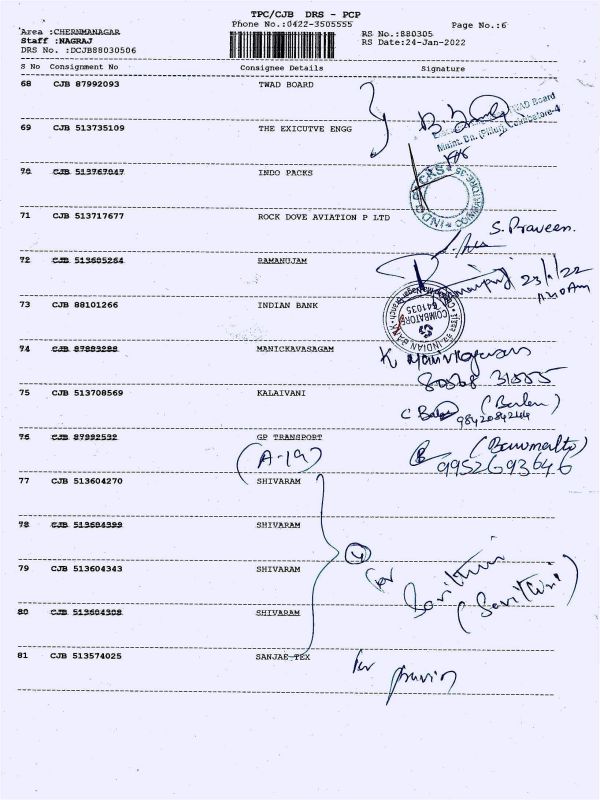 TPC/CJB DRS - PCP
Phone No.:0422-3505555
Page No.:6
Area :CHERNMANAGAR
Staff :NAGRAJ
DRS No. :DCJB88030506
RS No.:880305
RS Date:24-Jan-2022
S No Consignment No Consignee Details Signature
68 CJB 87992093 TWAD BOARD
TWAD Board
Coimbatore-4
69 CJB 513735109 THE EXICUTVE ENGG
70 CJB 513767047 INDO PACKS
71 CJB 513717677 ROCK DOVE AVIATION P LTD
S. Praveen.
72 CJB 513605264 RAMANUJAM
73 CJB 88101266 INDIAN BANK
COIMBATORE
641035
74 CJB 87883288 MANICKAVASAGAM
75 CJB 513708569 KALAIVANI
9842084244
76 CJB 87992532 GP TRANSPORT
(A-19)
9952693646
77 CJB 513604270 SHIVARAM
78 CJB 513604399 SHIVARAM
4
79 CJB 513604343 SHIVARAM
for Savithri
(Savithiri)
80 CJB 513604308 SHIVARAM
81 CJB 513574025 SANJAE TEX
for